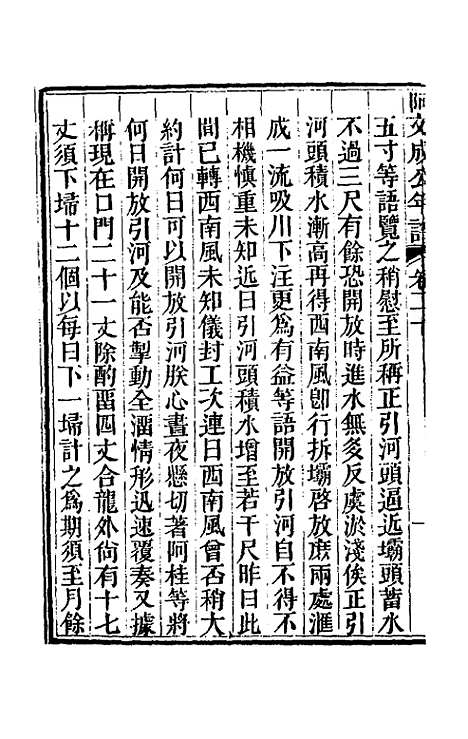 阿文成公年譜 卷二十
五寸等語覽之稍慰至所稱正引河頭逼近壩頭蓄水
不過三尺有餘恐開放時進水無多反虞淤淺俟正引
河頭積水漸高再得西南風卽行拆壩啓放庶兩處滙
成一流吸川下注更爲有益等語開放引河自不得不
相機慎重未知近日引河頭積水增至若干尺昨日此
間已轉西南風未知儀封工次連日西南風曾否稍大
約計何日可以開放引河朕心晝夜懸切著阿桂等將
何日開放引河及能否掣動全溜情形迅速覆奏又據
稱現在口門二十一丈除酌留四丈合龍外尙有十七
丈須下埽十二個以每日下一埽計之爲期須至月餘